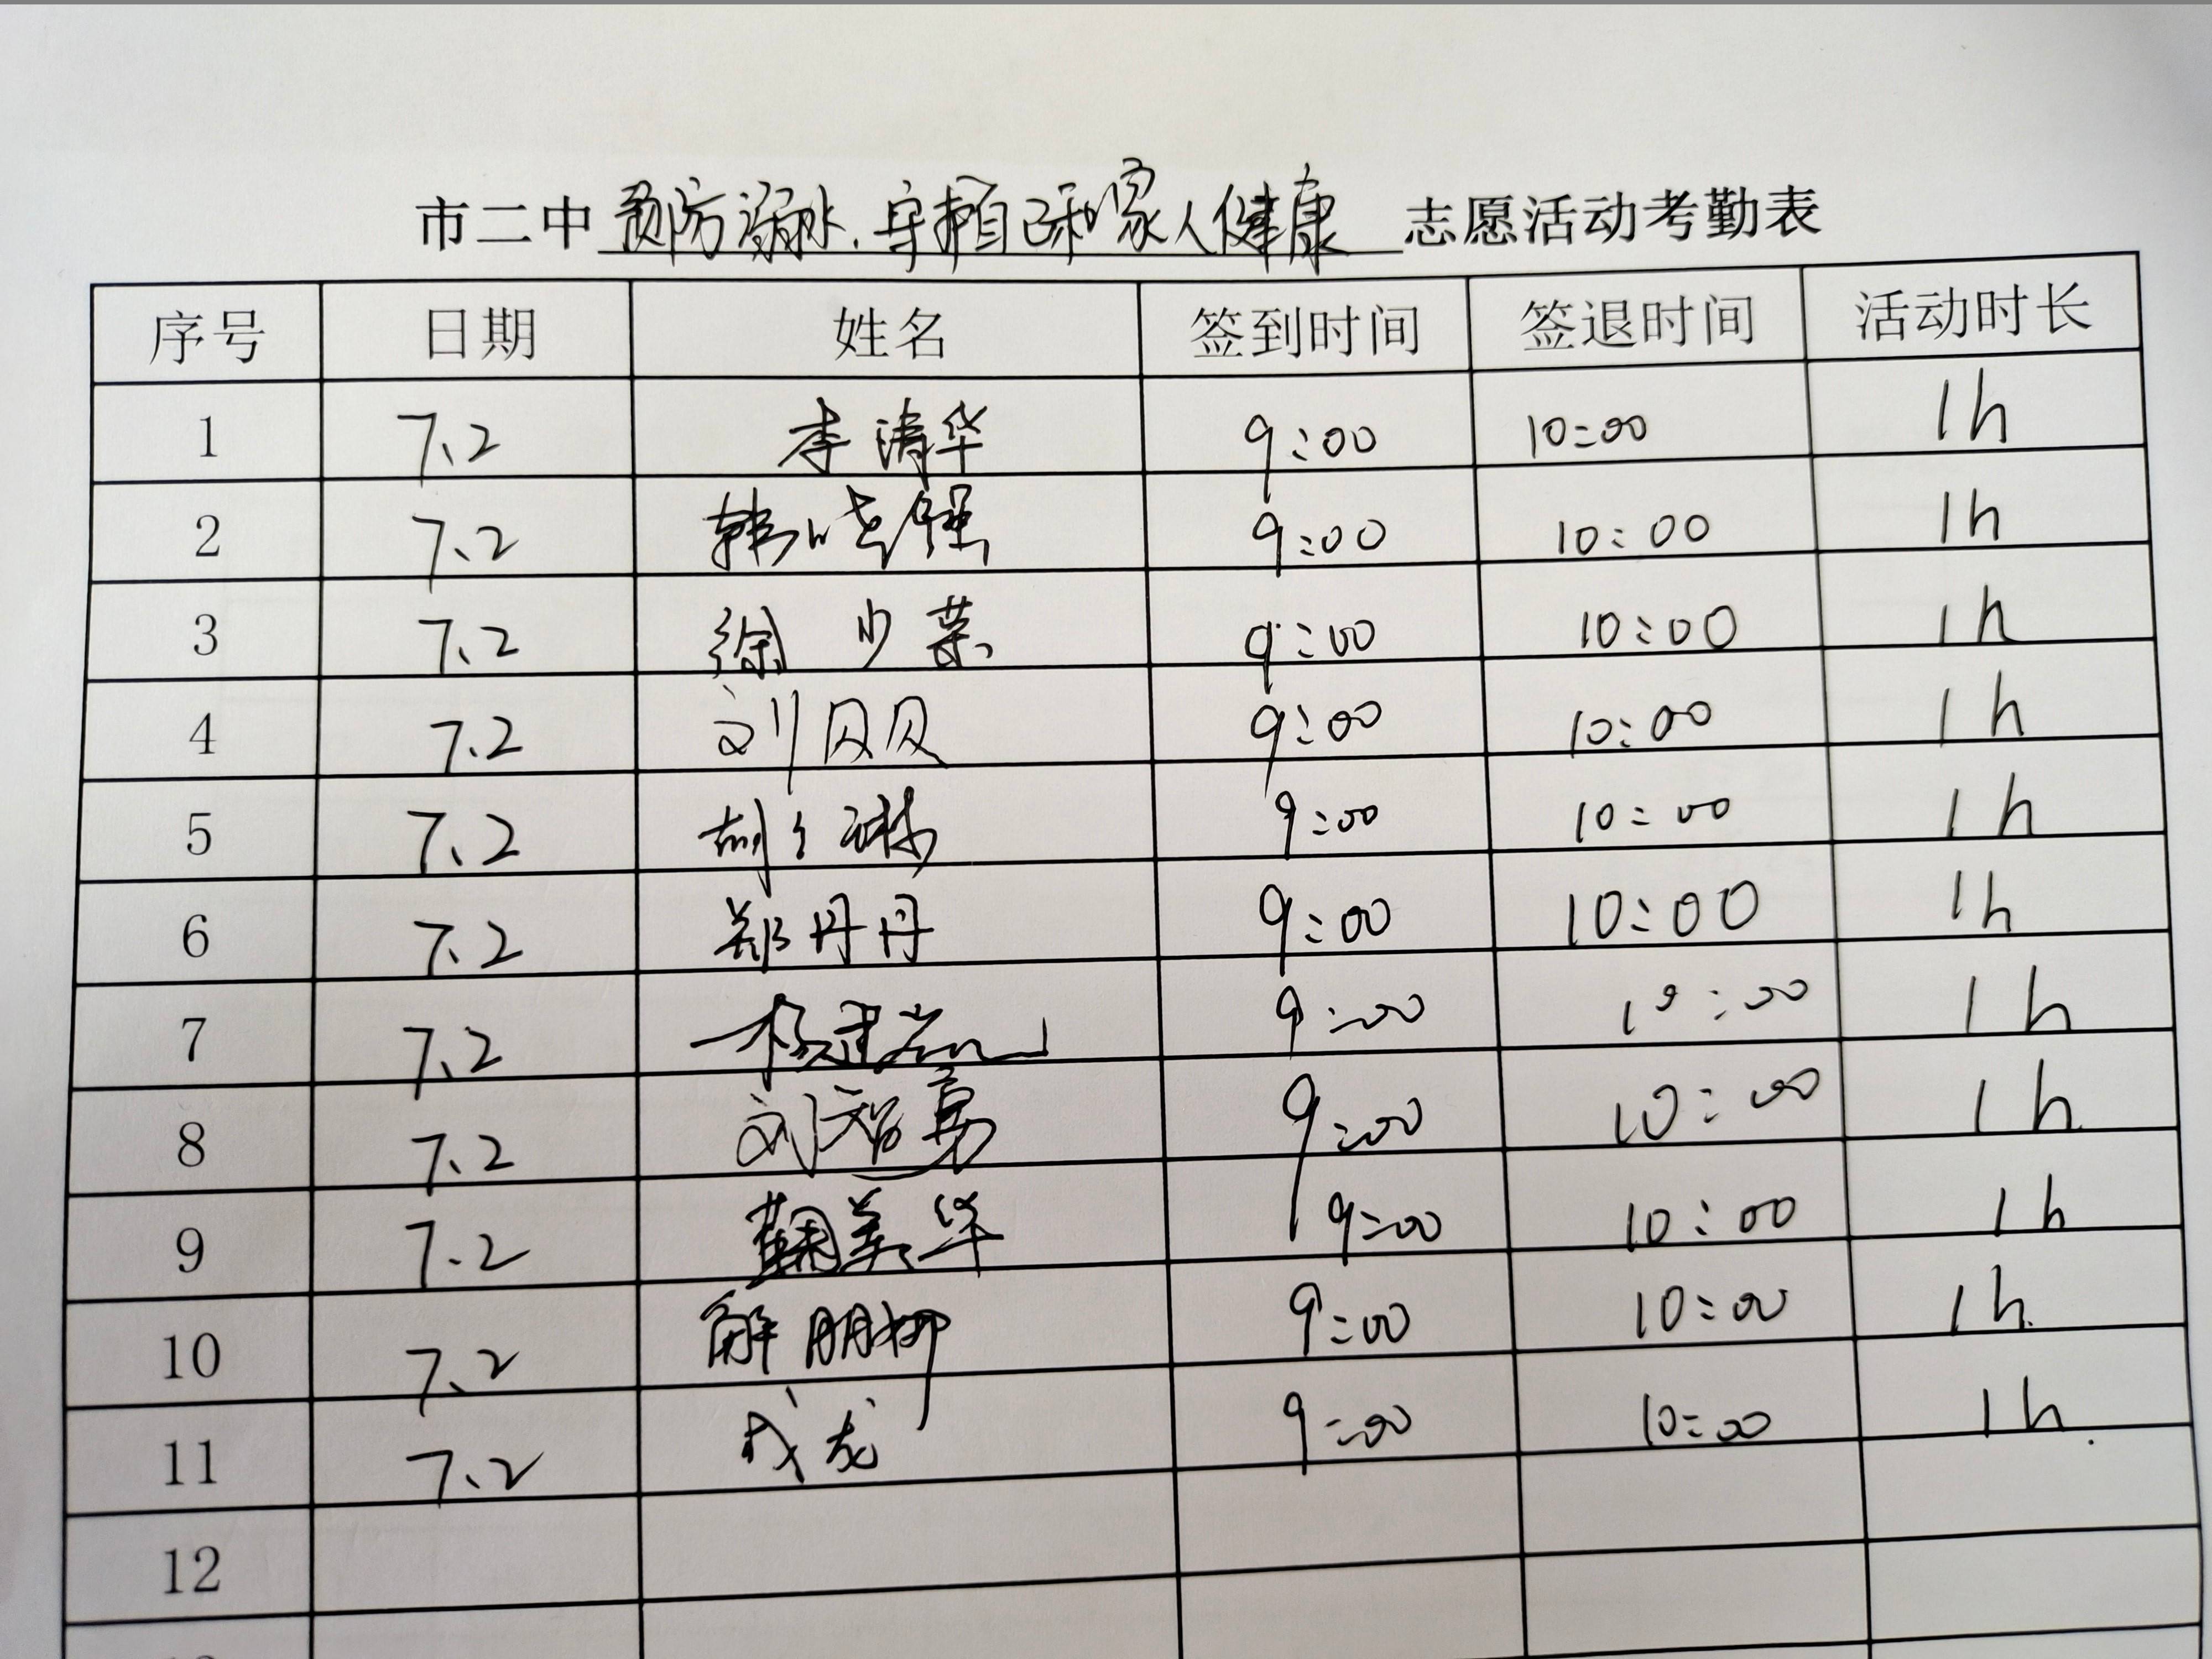 市二中预防溺水.守护自己和家人健康志愿活动考勤表
序号 日期 姓名 签到时间 签退时间 活动时长
1 7.2 李清华 9:00 10:00 1h
2 7.2 韩晓强 9:00 10:00 1h
3 7.2 徐少菜 9:00 10:00 1h
4 7.2 刘贝贝 9:00 10:00 1h
5 7.2 9:00 10:00 1h
6 7.2 郑丹丹 9:00 10:00 1h
7 7.2 9:00 10:00 1h
8 7.2 刘智勇 9:00 10:00 1h
9 7.2 鞠美华 9:00 10:00 1h
10 7.2 解朋柳 9:00 10:00 1h
11 7.2 成龙 9:00 10:00 1h
12